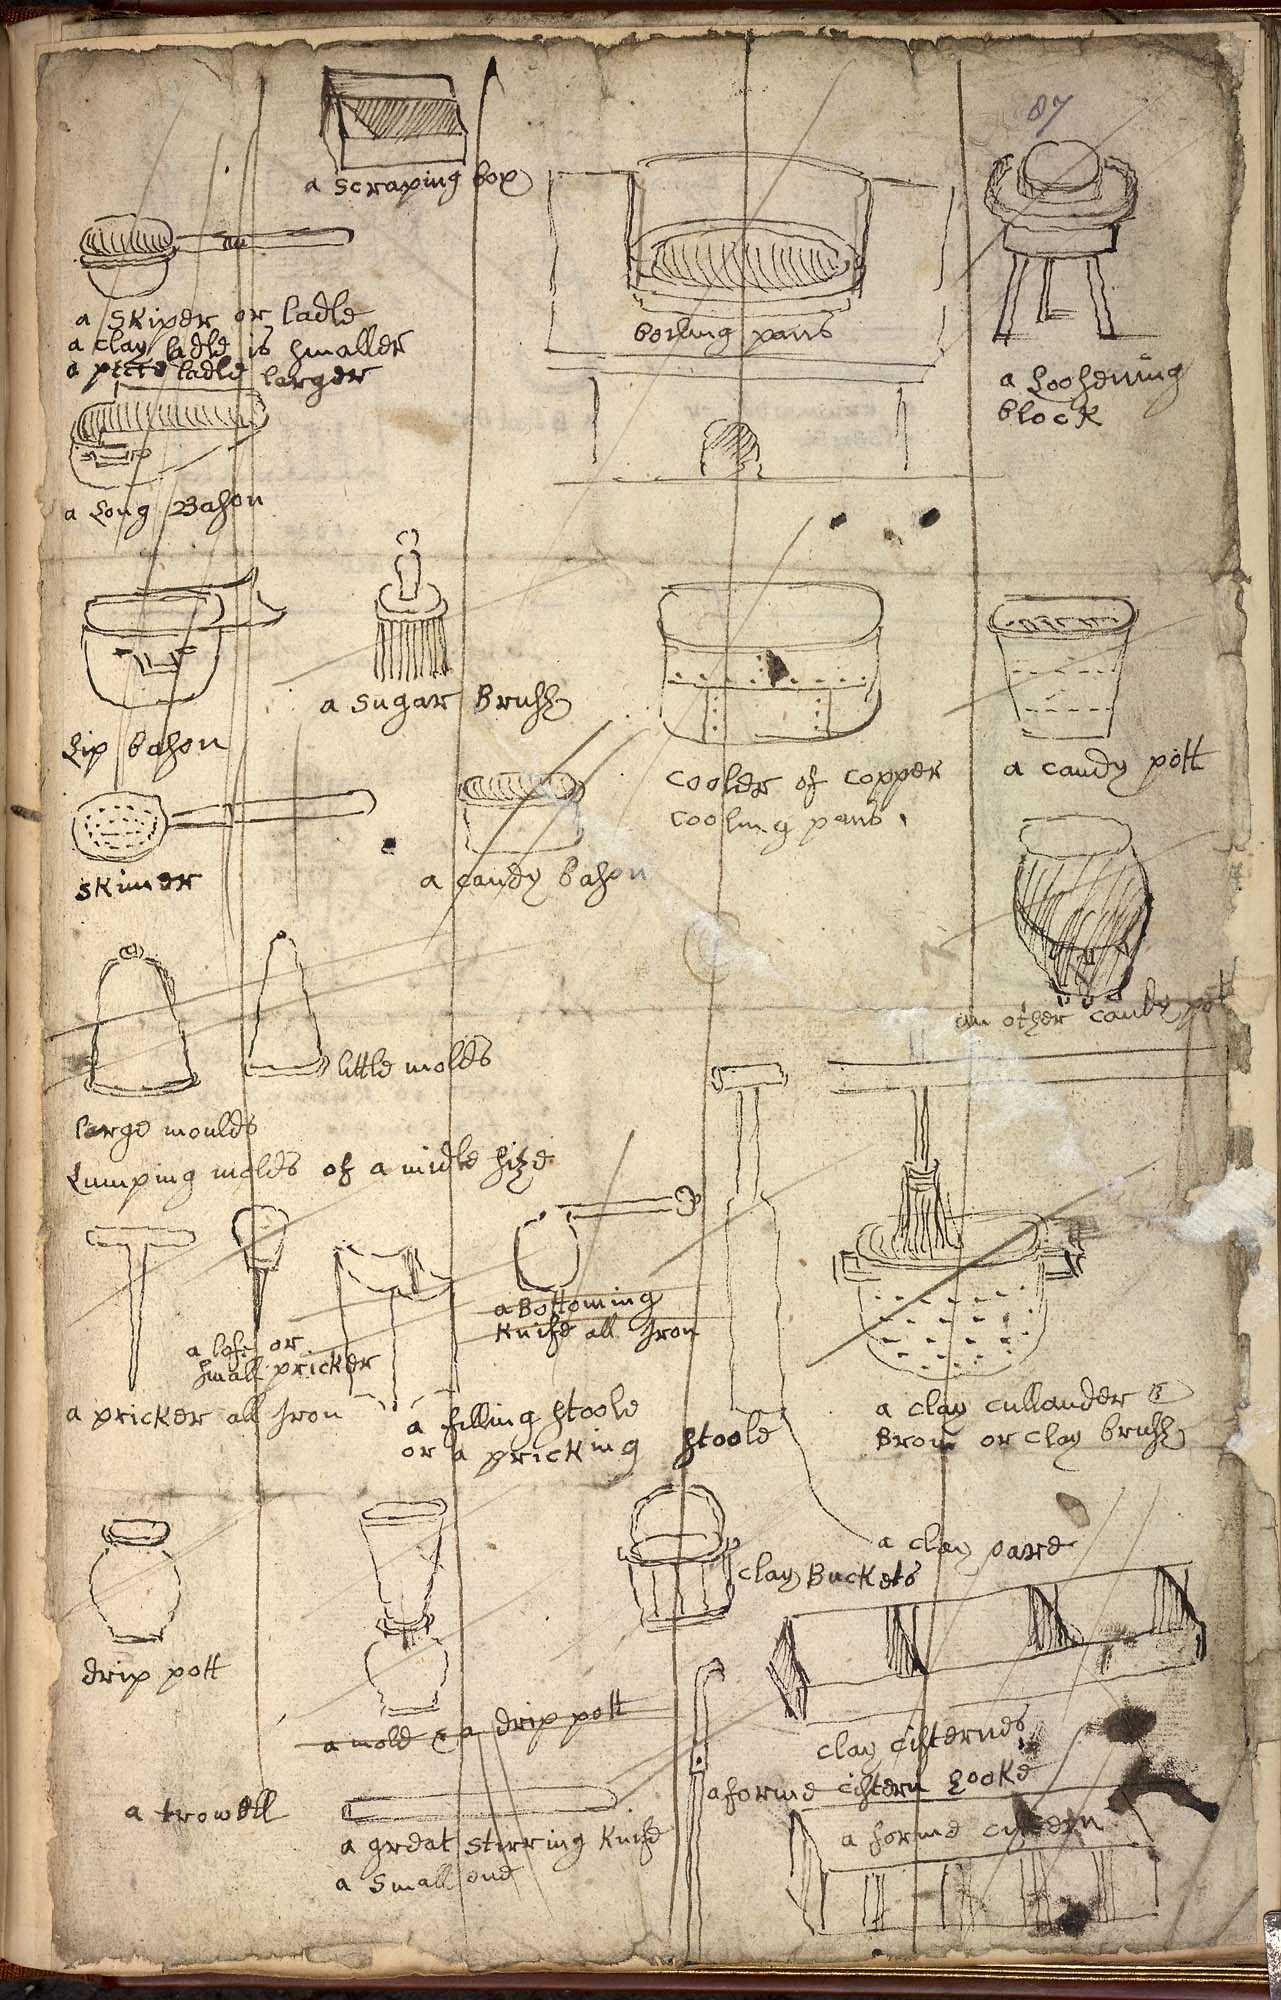 87
a scraping box
a skiper or ladle
a clay ladle is smaller
a ladle larger
boiling pans
a Loosening
block
a Long Bason
Lip bason
a sugar Brush
cooler of copper
cooling pans.
a candy pott
skimer
a candy bason
an other candy pot
little molds
large moulds
Lumping molds of a midle size
a lofe or
small pricker
a Bottoming
knife all Iron
a pricker all Iron
a filling stoole
or a pricking stoole
a clay cullander &
Brom or clay brush
a clay oare
clay Buckets
drip pott
a mold & a drip pott
clay cisternes
a forme cistern hooke
a trowell
a forme cistern
a great stirring knife
a small one